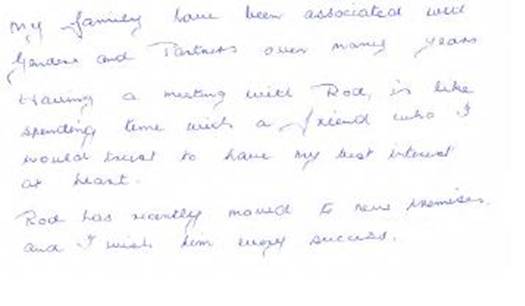 My family have been associated with
and Partners over many years
Having a meeting with Rod, is like
spending time with a friend who I
would trust to have my best interest
at heart.
Rod has recently moved to new premises.
and I wish him every success.